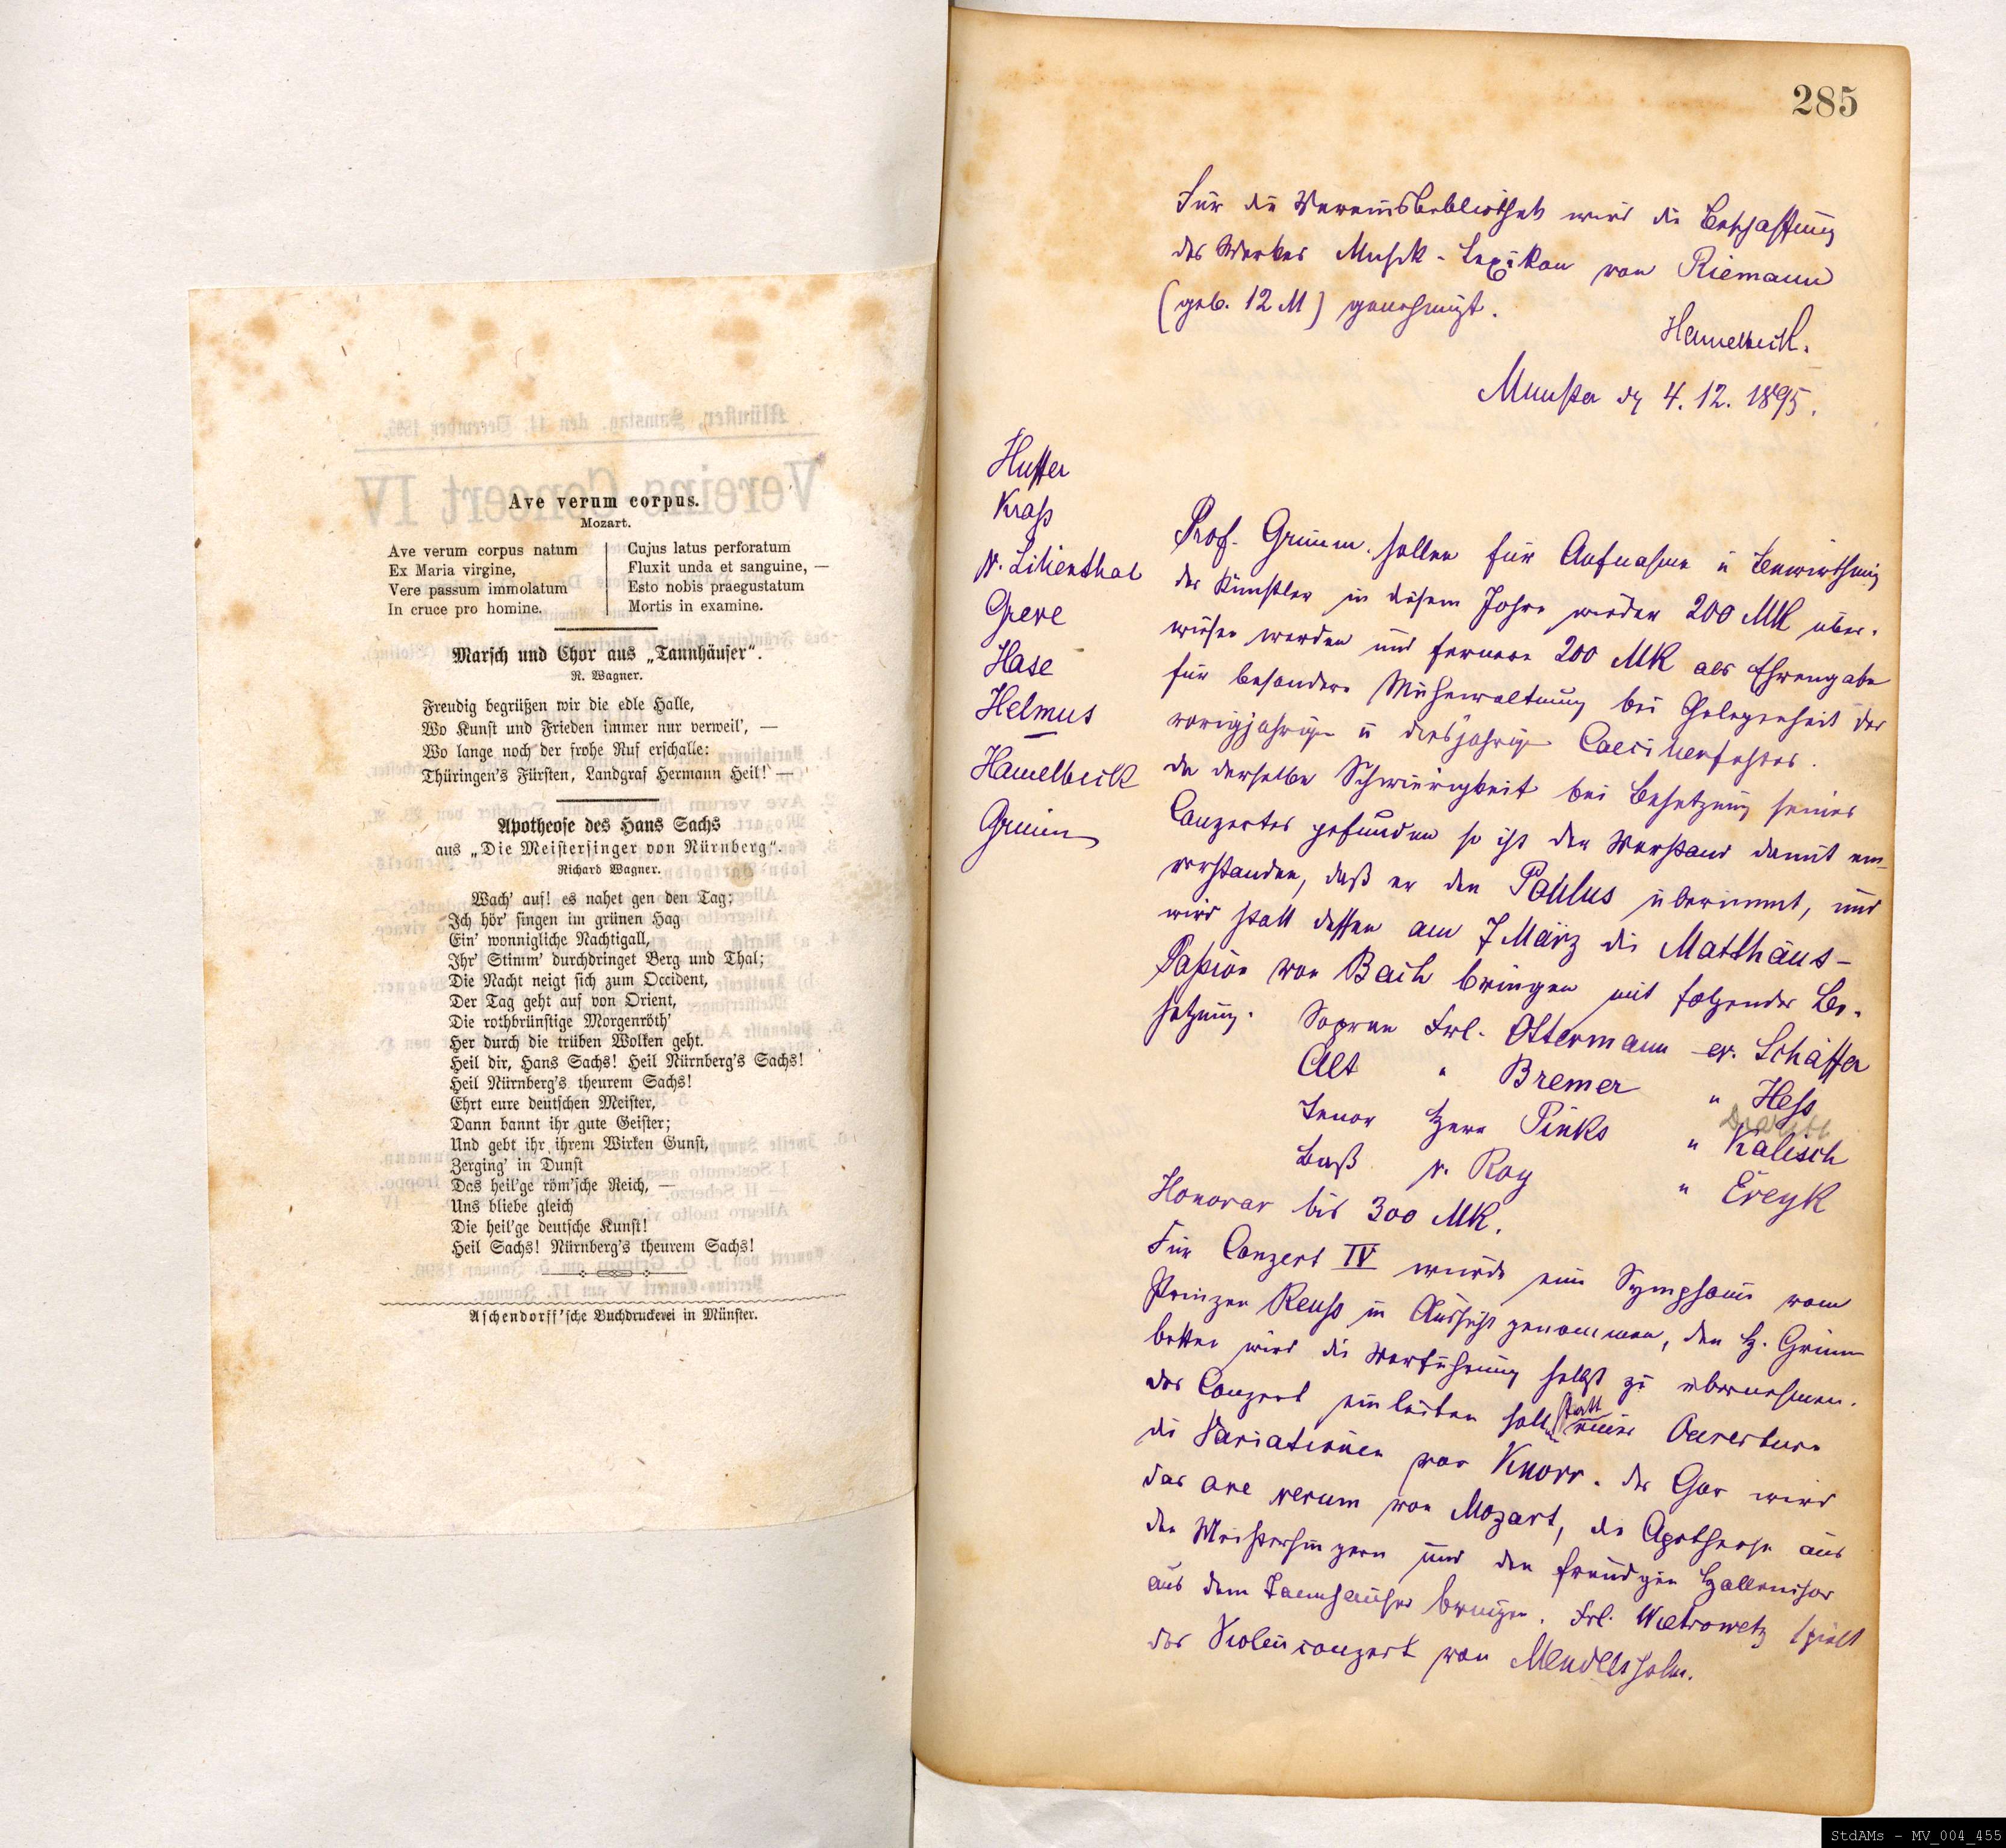 Ave verum corpus.
Mozart.
Ave verum corpus natum
Ex Maria virgine,
Vere passum immolatum
In cruce pro homine.
Cujus latus perforatum
Fluxit unda et sanguine, —
Esto nobis praegustatum
Mortis in examine.
Marsch und Chor aus „Tannhäuser“.
R. Wagner.
Freudig begrüßen wir die edle Halle,
Wo Kunst und Frieden immer nur verweil', —
Wo lange noch der frohe Ruf erschalle:
Thüringen's Fürsten, Landgraf Hermann Heil! —
Apotheose des Hans Sachs
aus „Die Meistersinger von Nürnberg“.
Richard Wagner.
Wach' auf! es nahet gen den Tag;
Ich hör' singen im grünen Hag
Ein' wonnigliche Nachtigall,
Ihr' Stimm' durchdringet Berg und Thal;
Die Nacht neigt sich zum Occident,
Der Tag geht auf von Orient,
Die rothbrünstige Morgenröth'
Her durch die trüben Wolken geht.
Heil dir, Hans Sachs! Heil Nürnberg's Sachs!
Heil Nürnberg's theurem Sachs!
Ehrt eure deutschen Meister,
Dann bannt ihr gute Geister;
Und gebt ihr ihrem Wirken Gunst,
Zerging' in Dunst
Das heil'ge röm'sche Reich, —
Uns bliebe gleich
Die heil'ge deutsche Kunst!
Heil Sachs! Nürnberg's theurem Sachs!
Aschendorff'sche Buchdruckerei in Münster.
285
Für die Vereinsbibliothek wird die Beschaffung
des Werkes Musik-Lexikon von Riemann
(geb. 12 M) genehmigt.
Hamelbeck.
Munster d 4. 12. 1895.
Huffer
Krass
v. Lilienthal
Greve
Hase
Helmus
Hamelbeck
Grimm
Prof. Grimm sollen für Aufnahme u Bewirthung
der Künstler in diesem Jahre wieder 200 MK über-
wiesen werden und fernere 200 MK als Ehrengabe
für besondere Mühewaltung bei Gelegenheit der
vorigjahrige u diesjahrige Caecilienfestes.
Da derselbe Schwierigkeit bei Besetzung seines
Conzertes gefunden so ist der Vorstand damit ein-
verstanden, daß er den Paulus übernimmt, und
wird statt dessen am 7 März die Matthäus-
Passion von Bach bringen mit folgender Be-
setzung. Sopran Frl. Ostermann ev. Schäffer
Alt " Bremer " Hess
Tenor Herr Pinks " Kalisch
Baß v. Roy " Ereyk
Honorar bis 300 MK.
Für Conzert IV wurde eine Symphonie vom
Prinzen Reuss in Aussicht genommen, den H. Grimm
bitten wird die Vorführung selbst zu übernehmen.
das Conzert einleiten sollen statt einer Ouverture
die Variationen von Knorr. der Chor wird
das ave verum von Mozart, die Apotheose aus
den Meistersingern und den freudgen Hallenchor
aus dem Tannhäuser bringen. Frl. Wietrowetz spielt
das Violinconzert von Mendelssohn.
StdAMs - MV_004_455